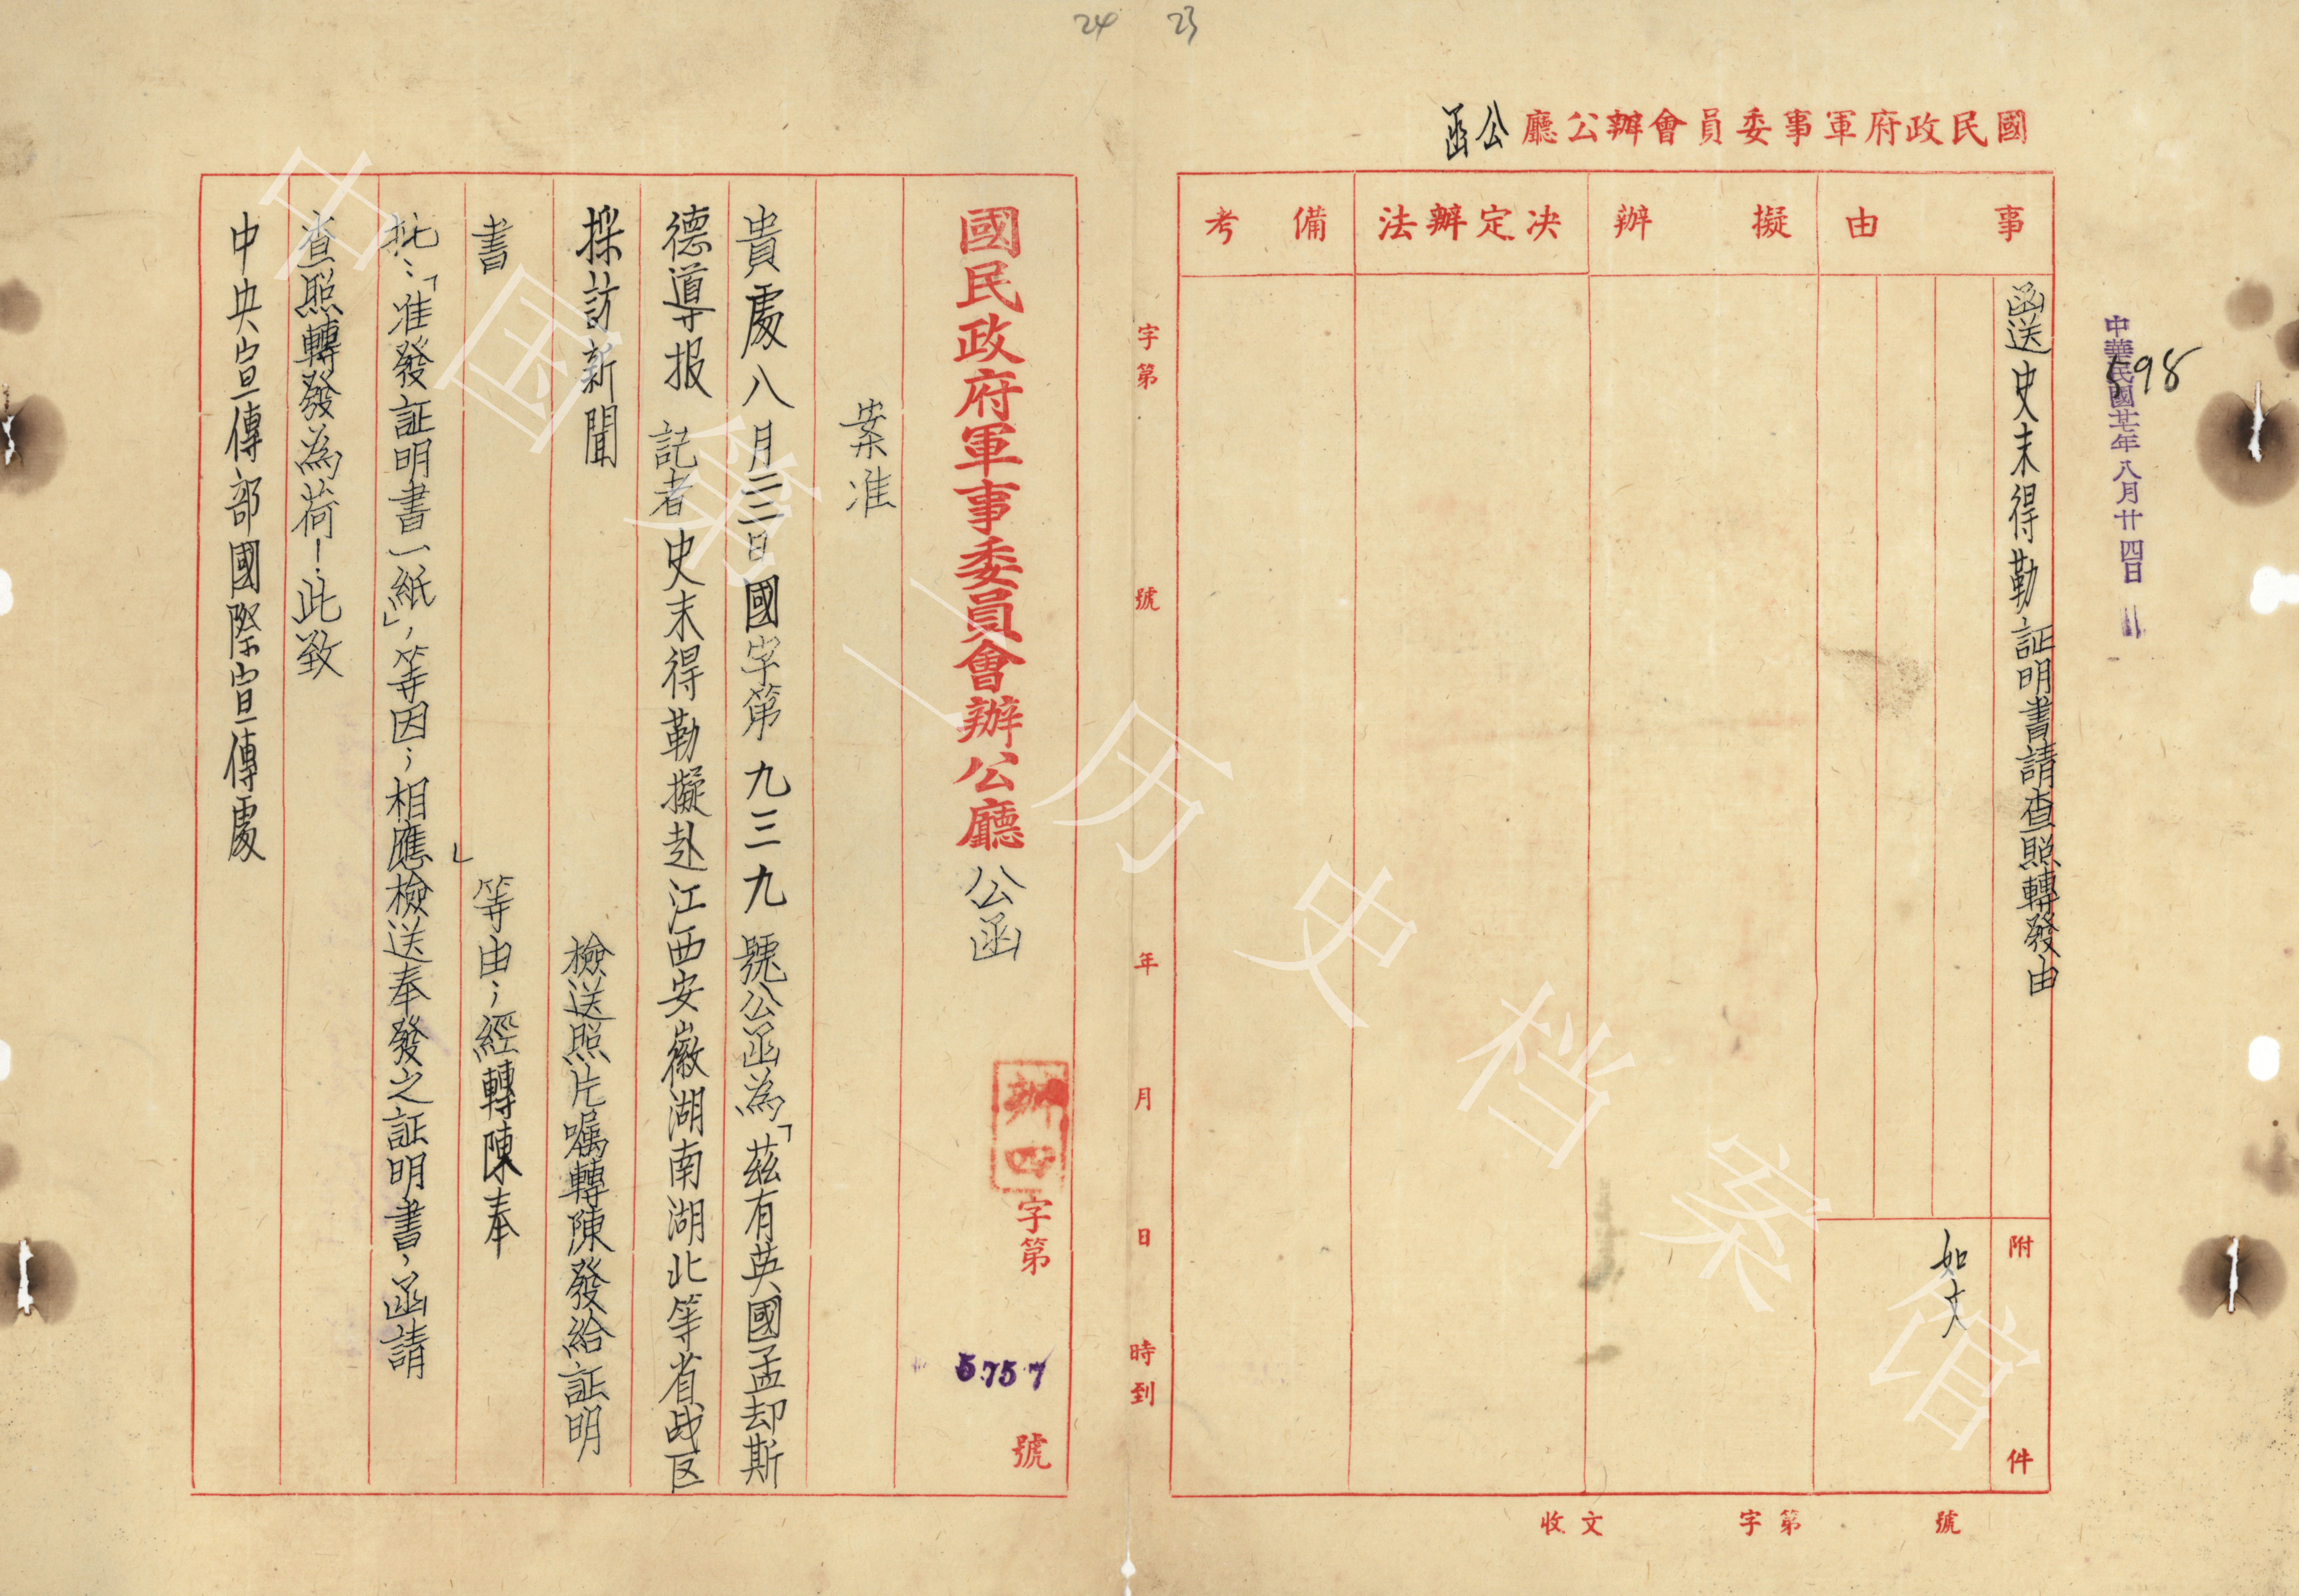 24 23
國民政府軍事委員會辦公廳公函
事由
擬辦
決定辦法
備考
函送史末得勒証明書請查照轉發由
附件
如文
中華民國廿七年八月廿四日
598
收文 字第 號
字第 號 年 月 日 時到
國民政府軍事委員會辦公廳公函
辦四字第5757號
案准
貴處八月二三日國字第九三九號公函為「茲有英國孟却斯
德導报記者史末得勒擬赴江西安徽湖南湖北等省战区
採訪新聞 檢送照片囑轉陳發給証明
書 」等由；經轉陳奉
批：「准發証明書一紙」，等因；相應檢送奉發之証明書，函請
查照轉發為荷！此致
中央宣傳部國際宣傳處
中国第二历史档案馆